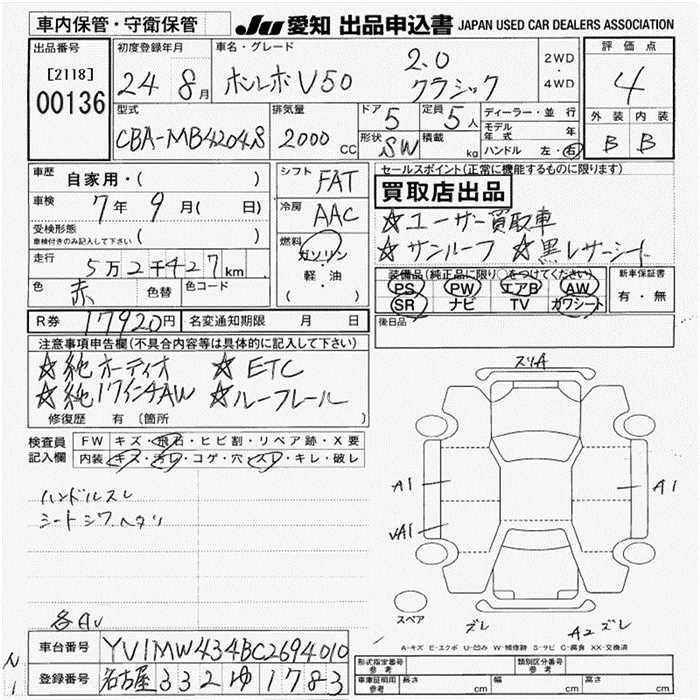 車内保管・守衛保管
JU 愛知 出品申込書 JAPAN USED CAR DEALERS ASSOCIATION
出品番号
[2118]
00136
初度登録年月
24 8月
車名・グレード
ボルボ V50
2.0
クラシック
2WD
・
4WD
評価点
4
外装 内装
B B
型式
CBA-MB4204S
排気量
2000 CC
ドア 5
形状 SW
定員 5人
積載 kg
ディーラー・並行
モデル年式 年
ハンドル 左・右
車歴 自家用・( )
車検 7年 9月( 日)
受検形態
車検付きのみ記入して下さい ( )
走行
5万2千427km
色 赤 色替 色コード
シフト FAT
冷房 AAC
燃料
ガソリン
・
軽・油
( )
セールスポイント(正常に機能するものに限ります)
買取店出品
☆ユーザー買取車
☆サンルーフ ☆黒レザーシート
装備品(純正品に限り○をつけてください)
PS PW エアB AW
SR ナビ TV カワシート
新車保証書
有・無
後日品
R券 17920円 名変通知期限 月 日
注意事項申告欄(不具合内容等は具体的に記入して下さい)
☆純オーディオ ☆ETC
☆純17インチAW ☆ルーフレール
修復歴 有(箇所 )
検査員
記入欄
FW キズ・飛石・ヒビ割・リペア跡・X要
内装 キズ・汚レ・コゲ・穴・スレ・キレ・破レ
ハンドルスレ
シートシワ ヘタリ
各AU
スリA
A1
A1
スペア
ズレ
A2 ズレ
A-キズ E-エクボ U-凹み W-補修跡 S-サビ C-腐食 XX-交換済
車台番号 YV1MW434BC2694010
登録番号 名古屋 332 ゆ 1783
形式指定番号
参考
類別区分番号
参考
車庫証明用
参考
長さ cm 幅 cm 高さ cm